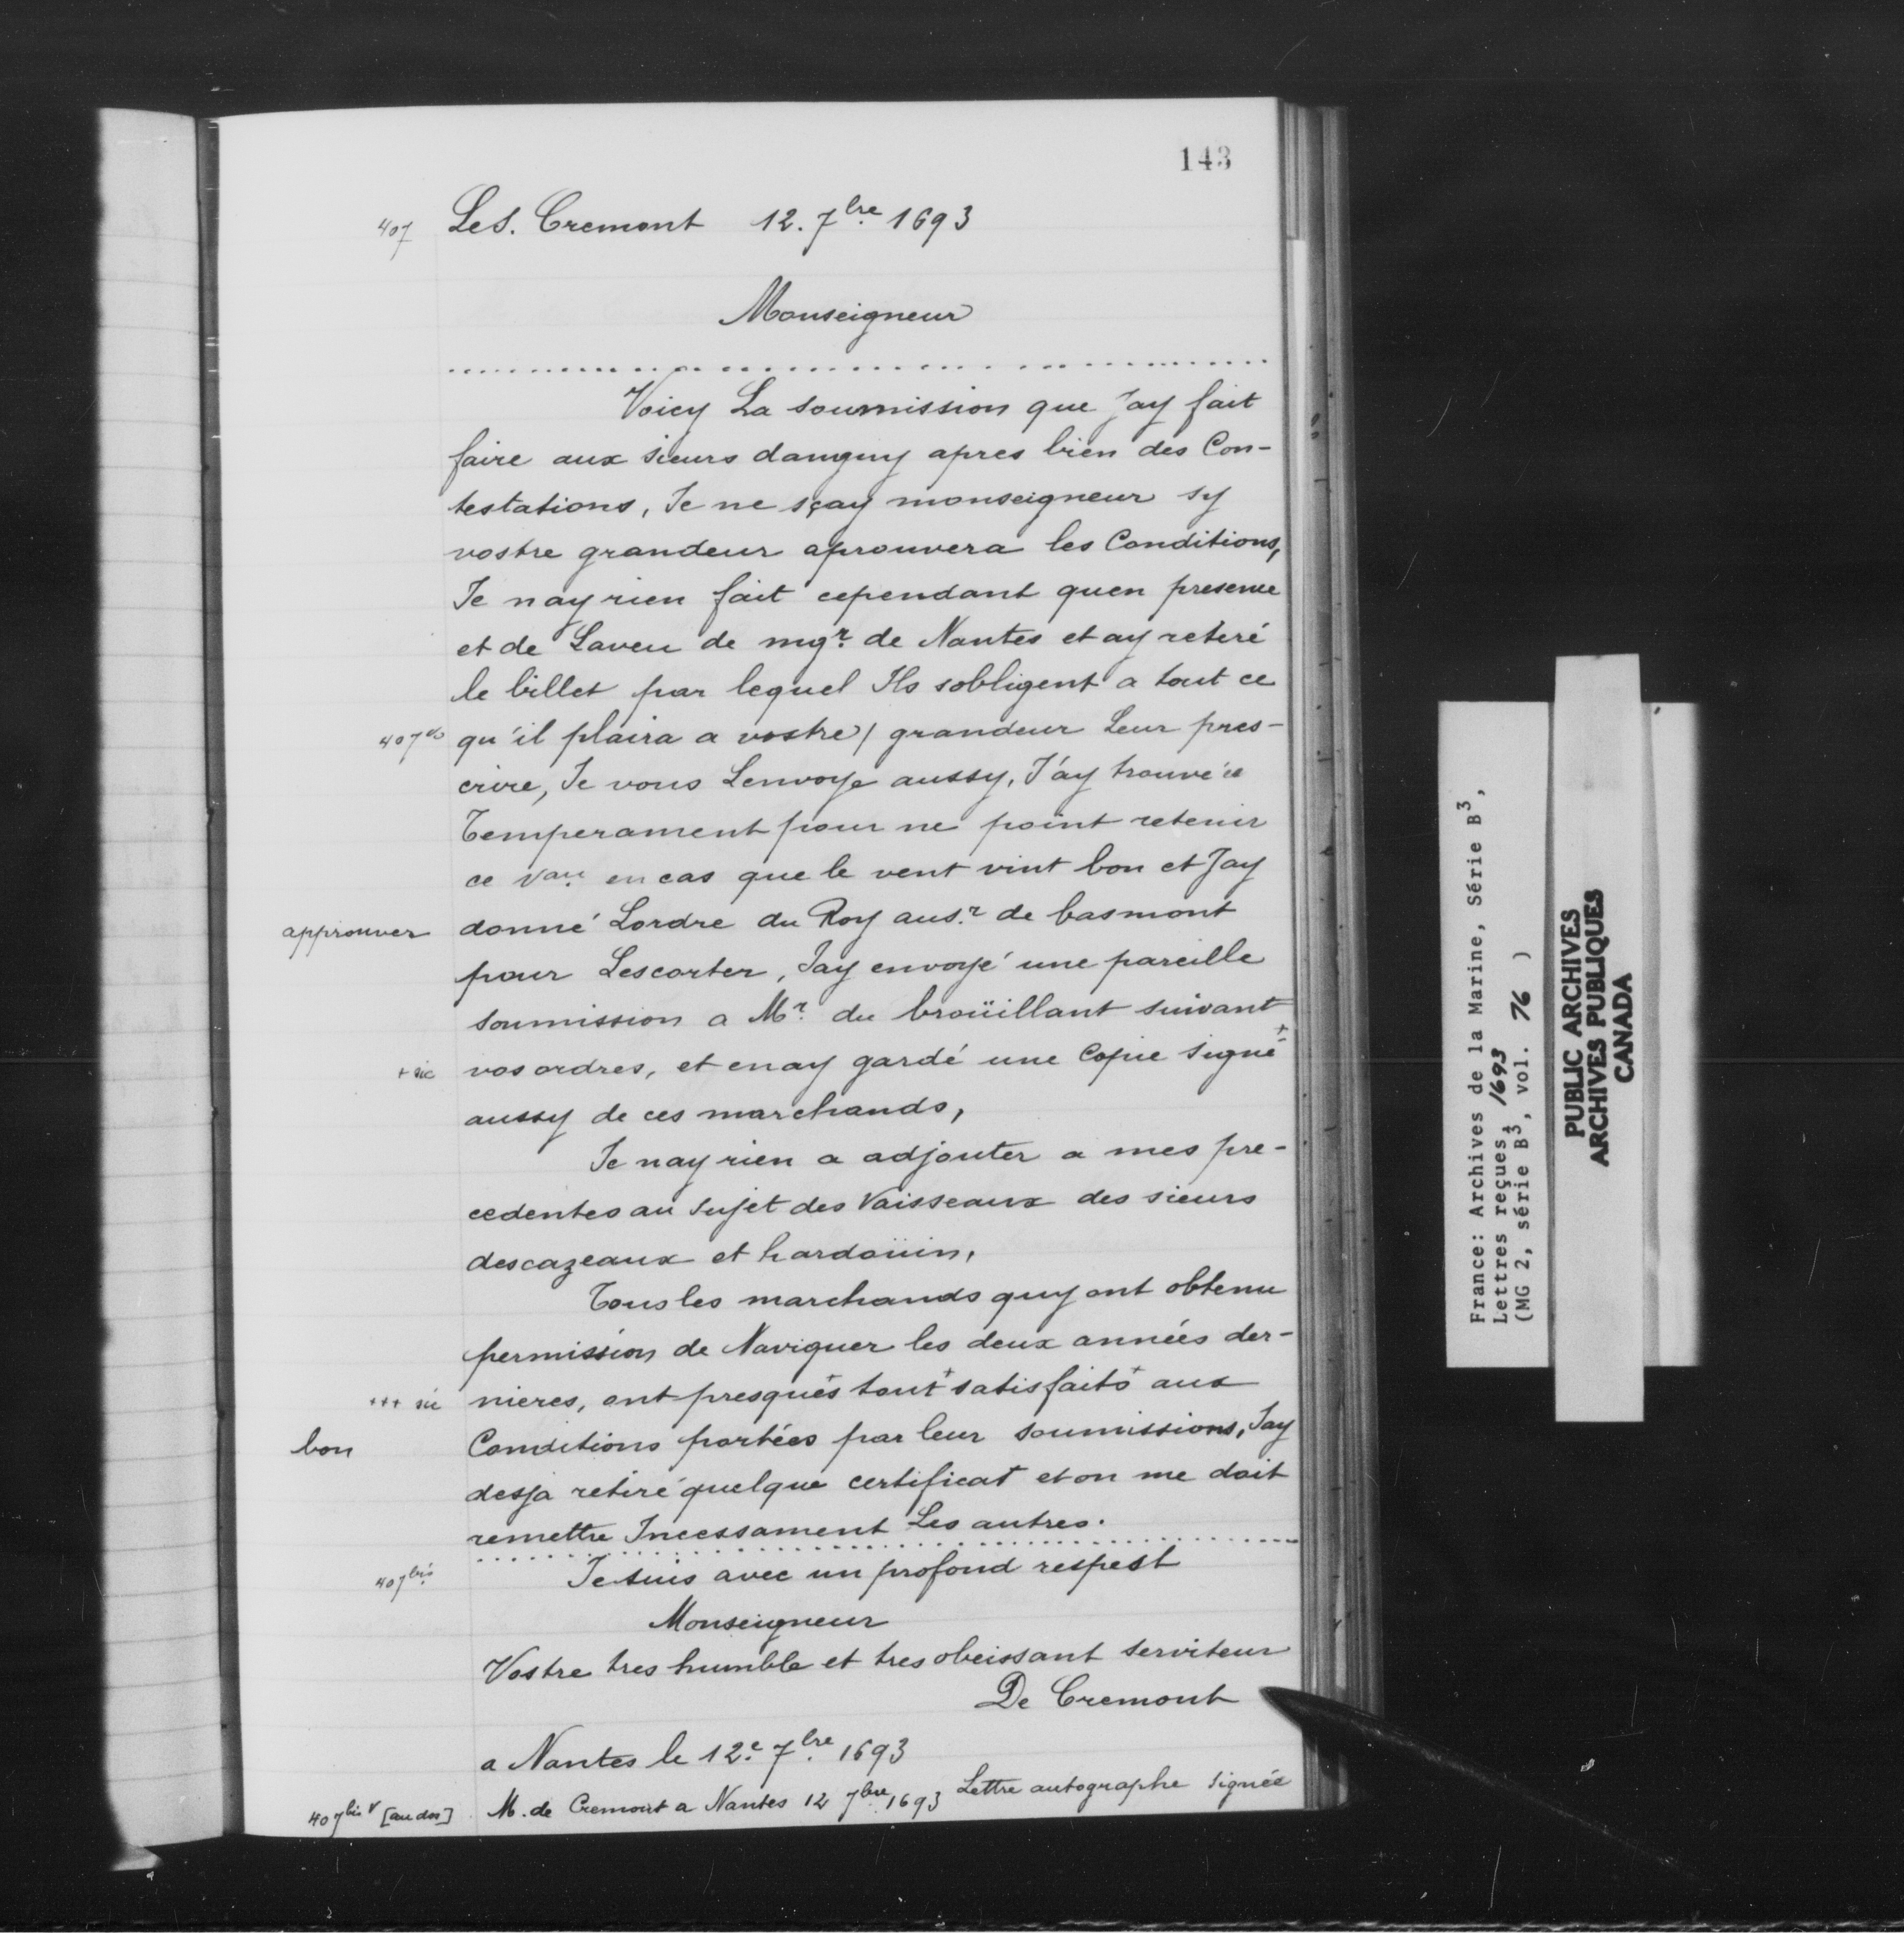 143
407 Le S. Cremont 12. 7bre 1693
Monseigneur
Voicy La soumission que Jay fait
faire aux sieurs danguy apres bien des Con-
testations, Je ne sçay monseigneur sy
vostre grandeur aprouvera les Conditions,
Je nay rien fait cependant quen presence
et de Laveu de mgr. de Nantes et ay retiré
le billet par lequel Ils sobligent a tout ce
407 vo qu'il plaira a vostre / grandeur Leur pres-
crire, Je vous Lenvoye aussy, J'ay trouvé ce
Temperament pour ne point retenir
ce vau en cas que le vent vint bon et Jay
approuver donné Lordre du Roy au sr. de basmont
pour Lescorter, Jay envoyé une pareille
soumission a Mr. du broüillant suivant
+ sic vos ordres, et en ay gardé une Copie signé +
aussy de ces marchands,
Je nay rien a adjouter a mes pre-
cedentes au sujet des Vaisseaux des sieurs
descazeaux et hardoüin,
Tous les marchands quy ont obtenu
permission de Naviguer les deux années der-
+++ sic nieres, ont presques + tout + satisfaits + aux
bon Conditions portées par leur soumissions, Jay
desja retiré quelque certificat et on me doit
remettre Incessament Les autres.
407 bis Je suis avec un profond respect
Monseigneur
Vostre tres humble et tres obeissant serviteur
De Cremont
a Nantes le 12e. 7bre. 1693
407 bis v [au dos] M. de Cremont a Nantes 12 7bre 1693 Lettre autographe signée
France: Archives de la Marine, Série B3,
Lettres reçues, 1693
(MG 2, série B3, vol. 76 )
PUBLIC ARCHIVES
ARCHIVES PUBLIQUES
CANADA